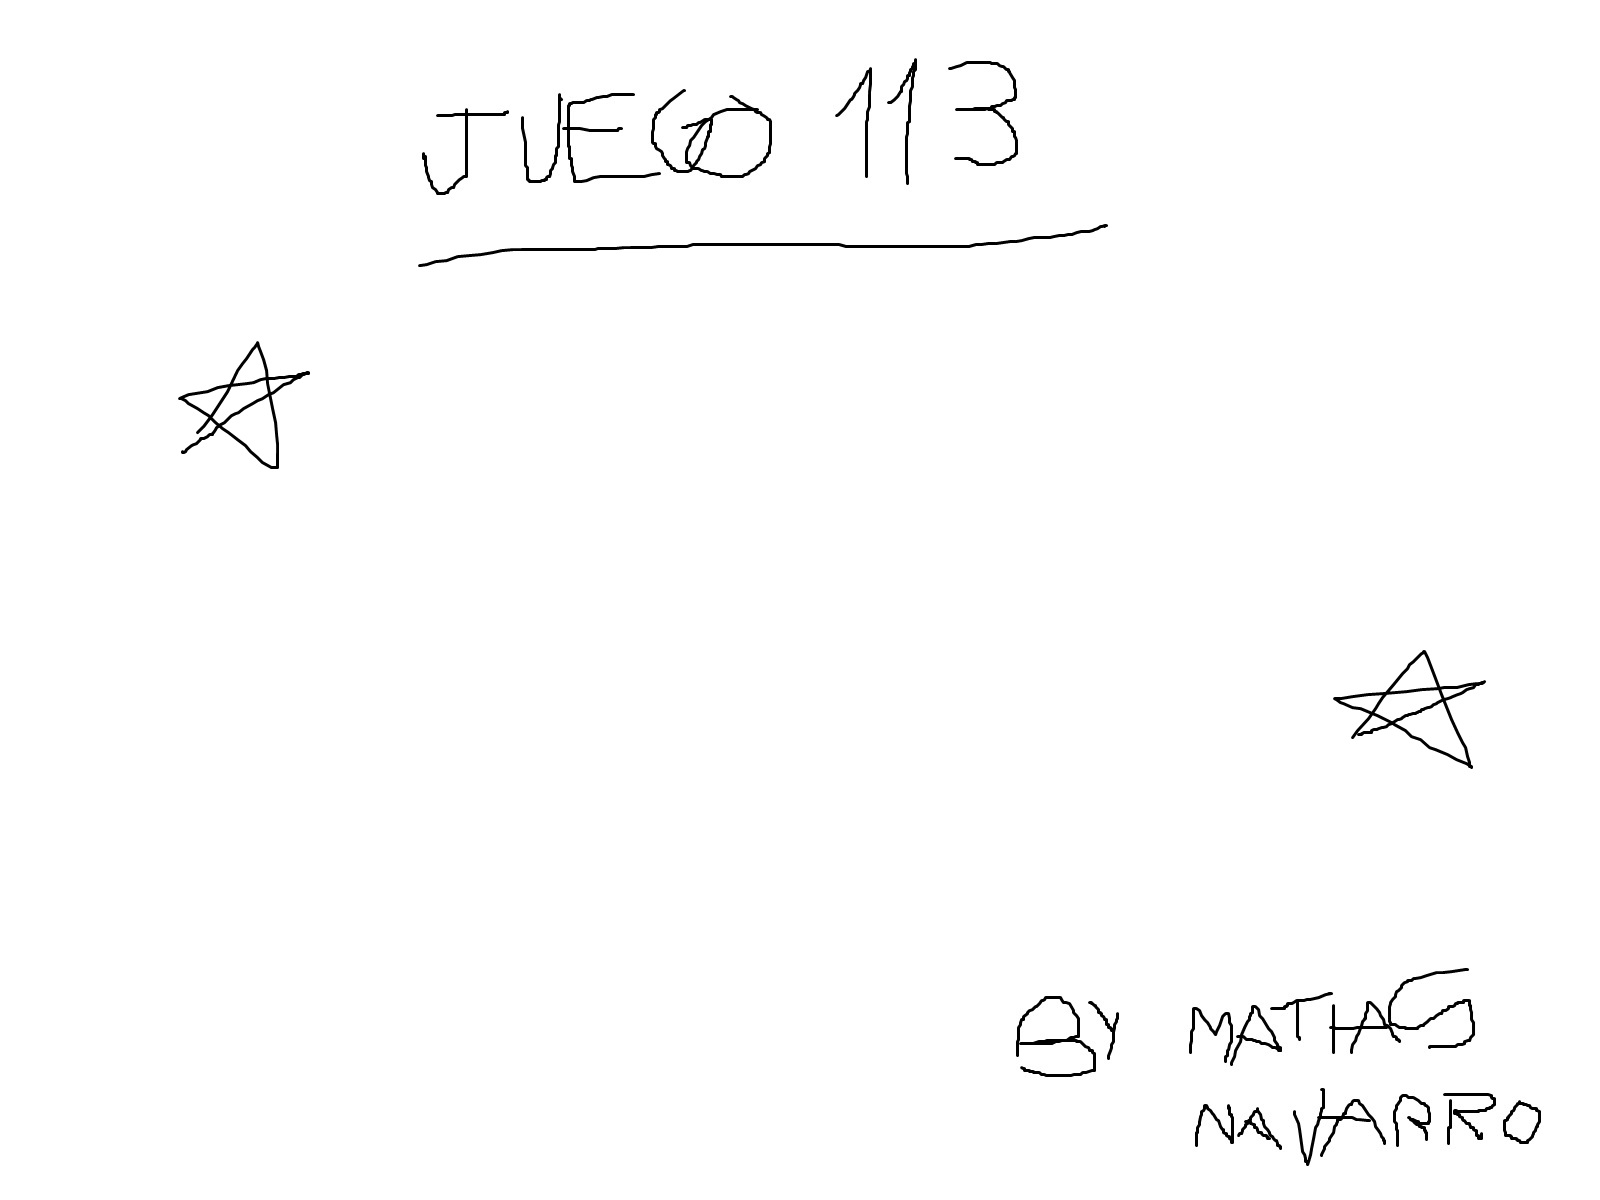 JUEGO 113
BY MATIAS
NAVARRO